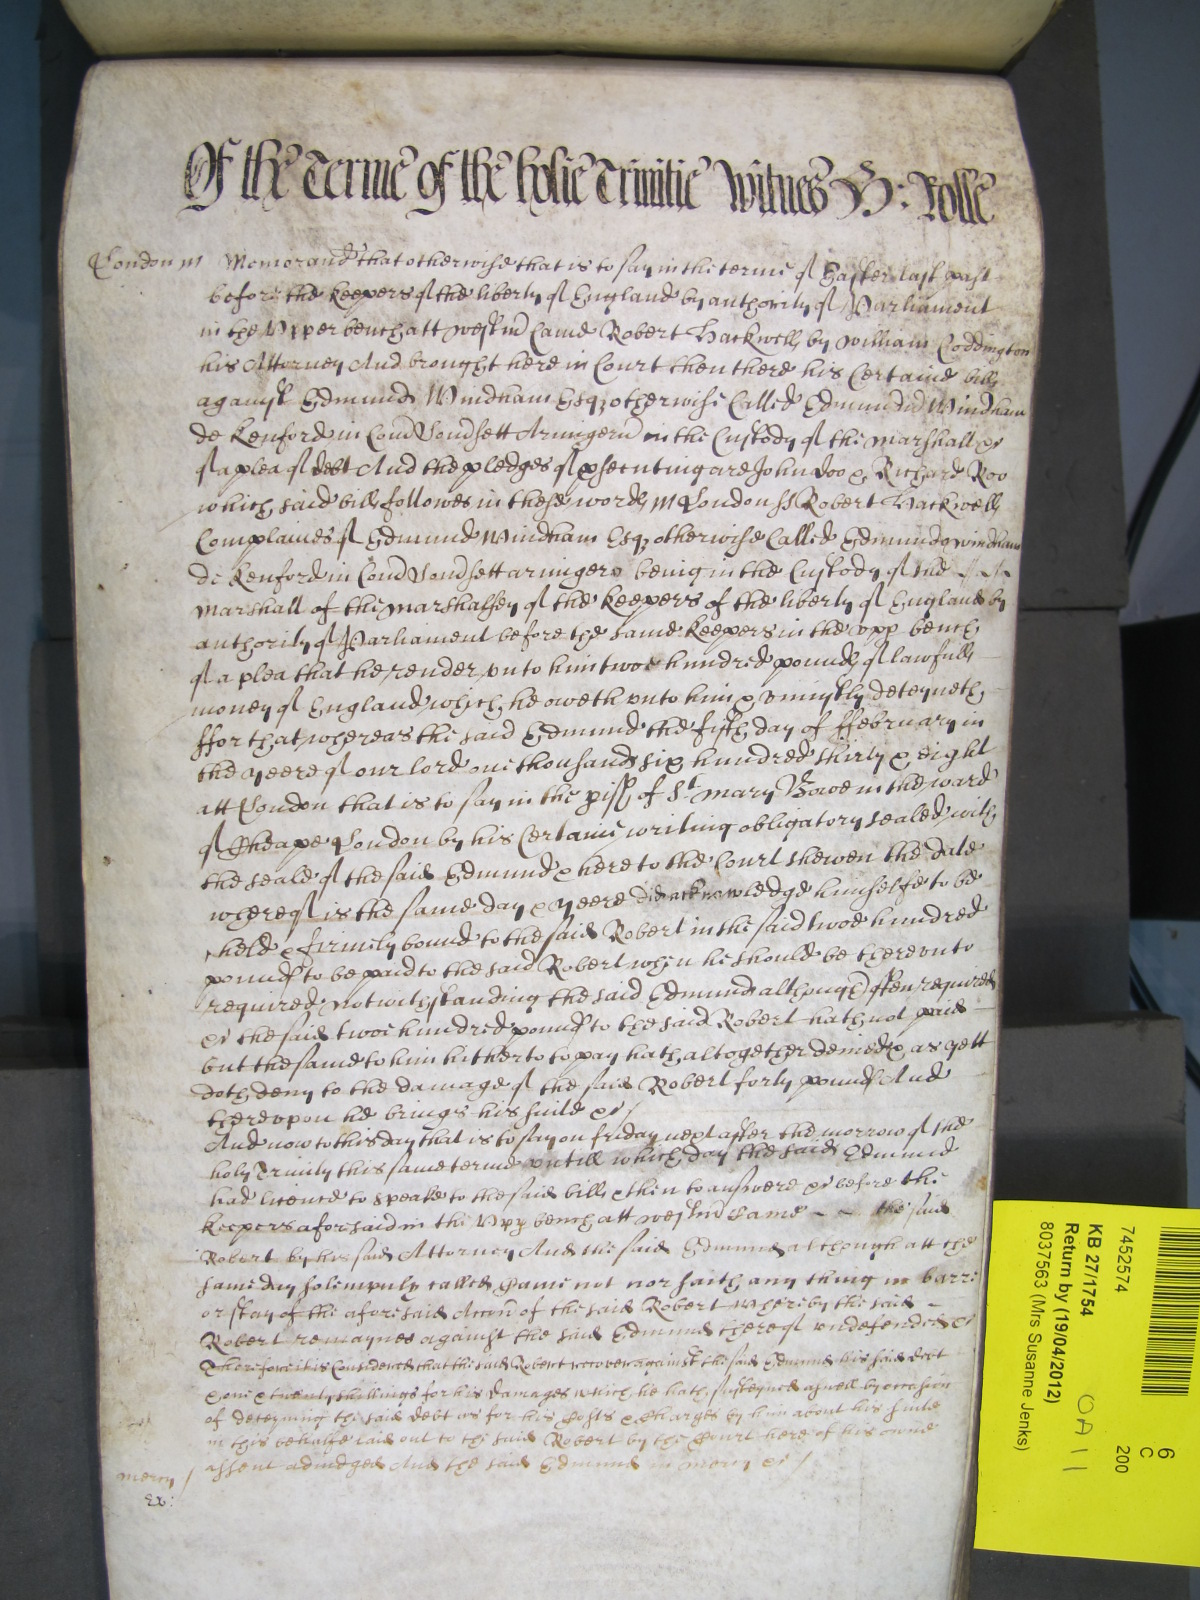 Of the Terme of the holie Trinitie Witnes H: Rolle
London m Memorand that otherwise that is to say in the terme of Easter last past
before the keepers of the liberty of England by authority of Parliament
in the Vpper bench att Westm Came Robert Hackwell by William Coddington
his Attorney And brought here in Court then there his Certaine bill
against Edmund Windham Esqz otherwise Called Edmundu Windham
de Kenford in Com Somsett Armigeru in the Custody of the Marshall &c
of a plea of debt And the pledges of psecuting are John Doo & Richard Roo
which said bill followes in these words m London ss Robert Hackwell
Complaines of Edmund Windham Esqz otherwise Called Edmundu Windham
de Kenford in Com Somsett armigeru being in the Custody of the
Marshall of the Marshalsey of the keepers of the liberty of England by
authority of Parliament before the same keepers in the vpp bench
of a plea that he render vnto him twoe hundred pounds of lawfull
money of England which he oweth vnto him & vniustly deteyneth
ffor that whereas the said Edmund the fifth day of ffebruary in
the yeere of our lord one thousand six hundred thirty & eight
att London that is to say in the pish of St Mary Bowe in the ward
of Cheape London by his Certaine writing obligatory sealed with
the seale of the said Edmund & here to the Court shewen the date
whereof is the same day & yeere did acknowledge himselfe to be
held & firmely bound to the said Robert in the said twoe hundred
pounds to be paid to the said Robert when he should be therevnto
required notwithstanding the said Edmund although often required
&c the said twoe hundred pounds to the said Robert hath not paid
but the same to him hitherto to pay hath altogether denied & as yett
doth deny to the damage of the said Robert forty pounds And
therevpon he brings his suite &c
And now to this day that is to say on friday next after the morrow of the
holy Trinity this same terme vntill which day the said Edmund
had licence to speake to the said bill & then to answere &c before the
keepers aforesaid in the Vpp bench att Westm Came the said
Robert by his said Attorney And the said Edmund although att the
same day solempnly called Came not nor saith any thing in barre
or stay of the aforesaid Accon of the said Robert whereby the said
Robert remaynes against the said Edmund thereof vndefended &c
Therefore it is Considered that the said Robert recover against the said Edmund his said debt
& one & twenty shillings for his damages which he hath susteyned aswell by occasion
of deteyning the said debt as for his Costs & Charges by him about his suite
in this behalfe laid out to the said Robert by the Court here of his owne
mercy assent adiudged And the said Edmund in mercy &c
Ex:
7452574
KB 27/1754
Return by (19/04/2012)
8037563 (Mrs Susanne Jenks)
6
C
200
OA 11